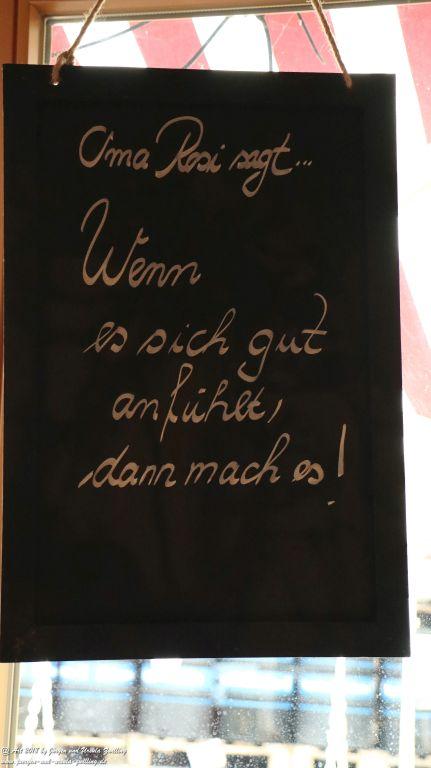 Oma Rosi sagt...
Wenn
es sich gut
anfühlt,
dann mach es!
(C) Art 2018 by Jürgen und Ursula Zwilling
www.juergen-und-ursula-zwilling.de